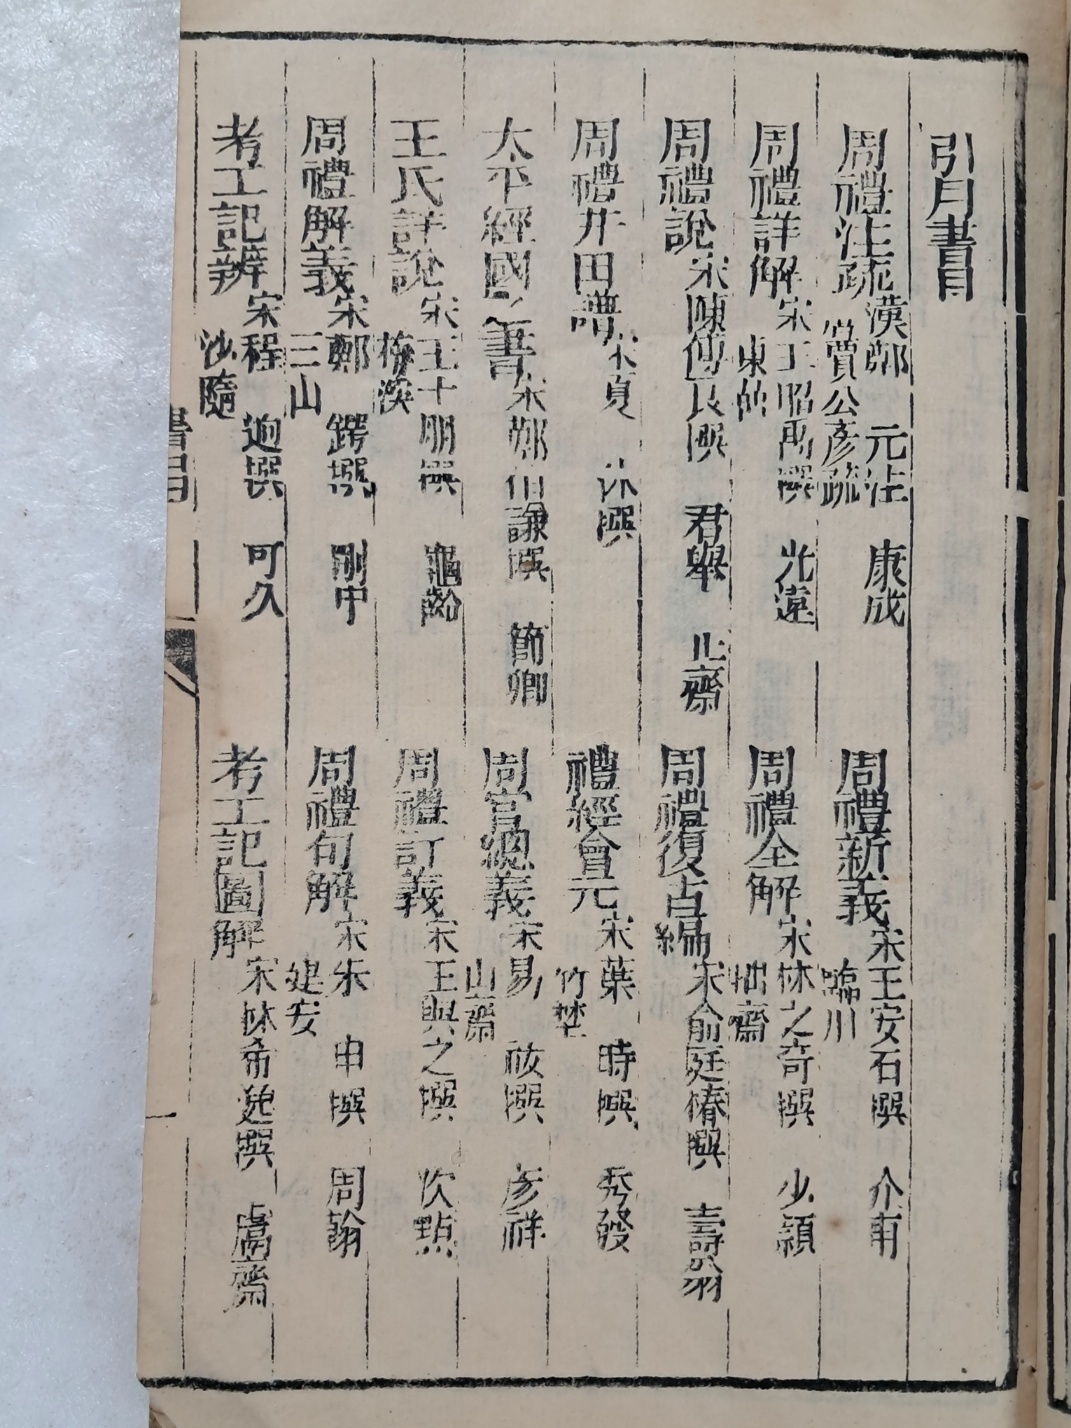 引用書目
周禮注疏漢鄭 元注 康成
賈公彥疏
周禮新義宋王安石撰 介甫
臨川
周禮詳解宋王昭禹撰 光遠
東
周禮全解宋林之奇撰 少穎
拙齋
周禮說宋陳傅良撰 君舉 止齋
周禮復古編宋俞廷椿撰 壽翁
周禮井田譜宋夏 休撰
禮經會元宋葉 時撰 秀發
竹埜
太平經國之書宋鄭伯謙撰 節卿
周官總義宋易 祓撰 彥祥
山齋
王氏詳說宋王十朋撰 龜齡
梅溪
周禮訂義宋王與之撰 次點
周禮解義宋鄭 鍔撰 剛中
三山
周禮句解宋朱 申撰 周翰
建安
考工記辨宋程 迥撰 可久
沙隨
考工記圖解宋林希逸撰 鬳齋
書目
一